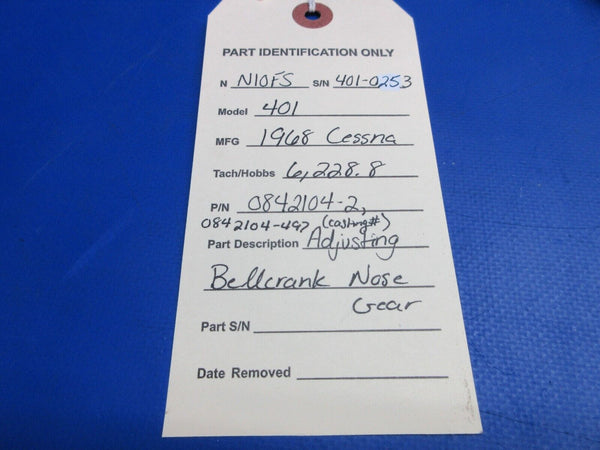 PART IDENTIFICATION ONLY
N N10FS S/N 401-0253
Model 401
MFG 1968 Cessna
Tach/Hobbs 6,228.8
P/N 0842104-2,
0842104-497 (casting#)
Part Description Adjusting
Bellcrank Nose
Gear
Part S/N
Date Removed